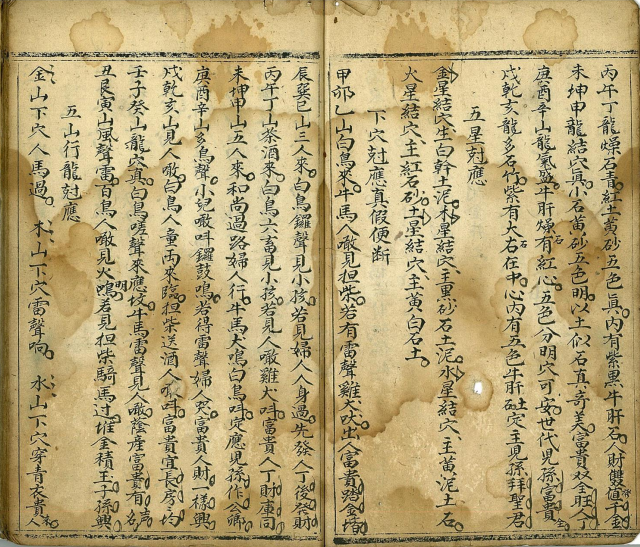 丙午丁龍燥石青紅土黄砂五色真内有紫黑牛肝石人財雙值千金
未坤申龍結穴真小石黄砂五色明以土似石真奇美富貴双全旺人丁
庚酉辛山龍氣盛牛肝燥有紅心五色分明穴可安世代児孫富貴
戌乾亥龍多石竹紫有大石在中心内有五色牛肝石定主児孫拜聖君
五星尅應
金星結穴生白幹土泥木星結穴主黒砂石土泥水星結穴主黄泥土石
火星結穴主紅石砂土星結穴主黄白石土
下穴尅應真假便断
甲卯乙山白鳥來牛馬人噉見担柴若有雷聲雞犬吠出人富貴踏金堦
辰巽巳山三人來白鳥鑼聲見小孩若見婦人人身過先發人丁後發財
丙午丁山茶酒来白鳥六畜見小孩若見人噉雞犬呌富貴人丁財庫司
未坤申山五人來和尚過路婦人行牛馬犬鳴白鳥呌定應児孫作公卿
庚酉辛山多鳥聲小児噉呌鑼鼓鳴若得雷聲婦人哭富貴人財一樣興
戌乾亥山見人噉白鳥人童雨來臨担柴送酒人呌富貴宜長房均
壬子癸山龍穴真白鳥聲來應牛馬雷聲見人噉蔭産富貴有名声
丑艮寅山風聲雷百鳥人噉見火明若見担柴騎馬过堆金積玉子孫興
五山行龍尅應
金山下穴人馬過 木山下穴雷聲响 水山下穴穿青衣貴人